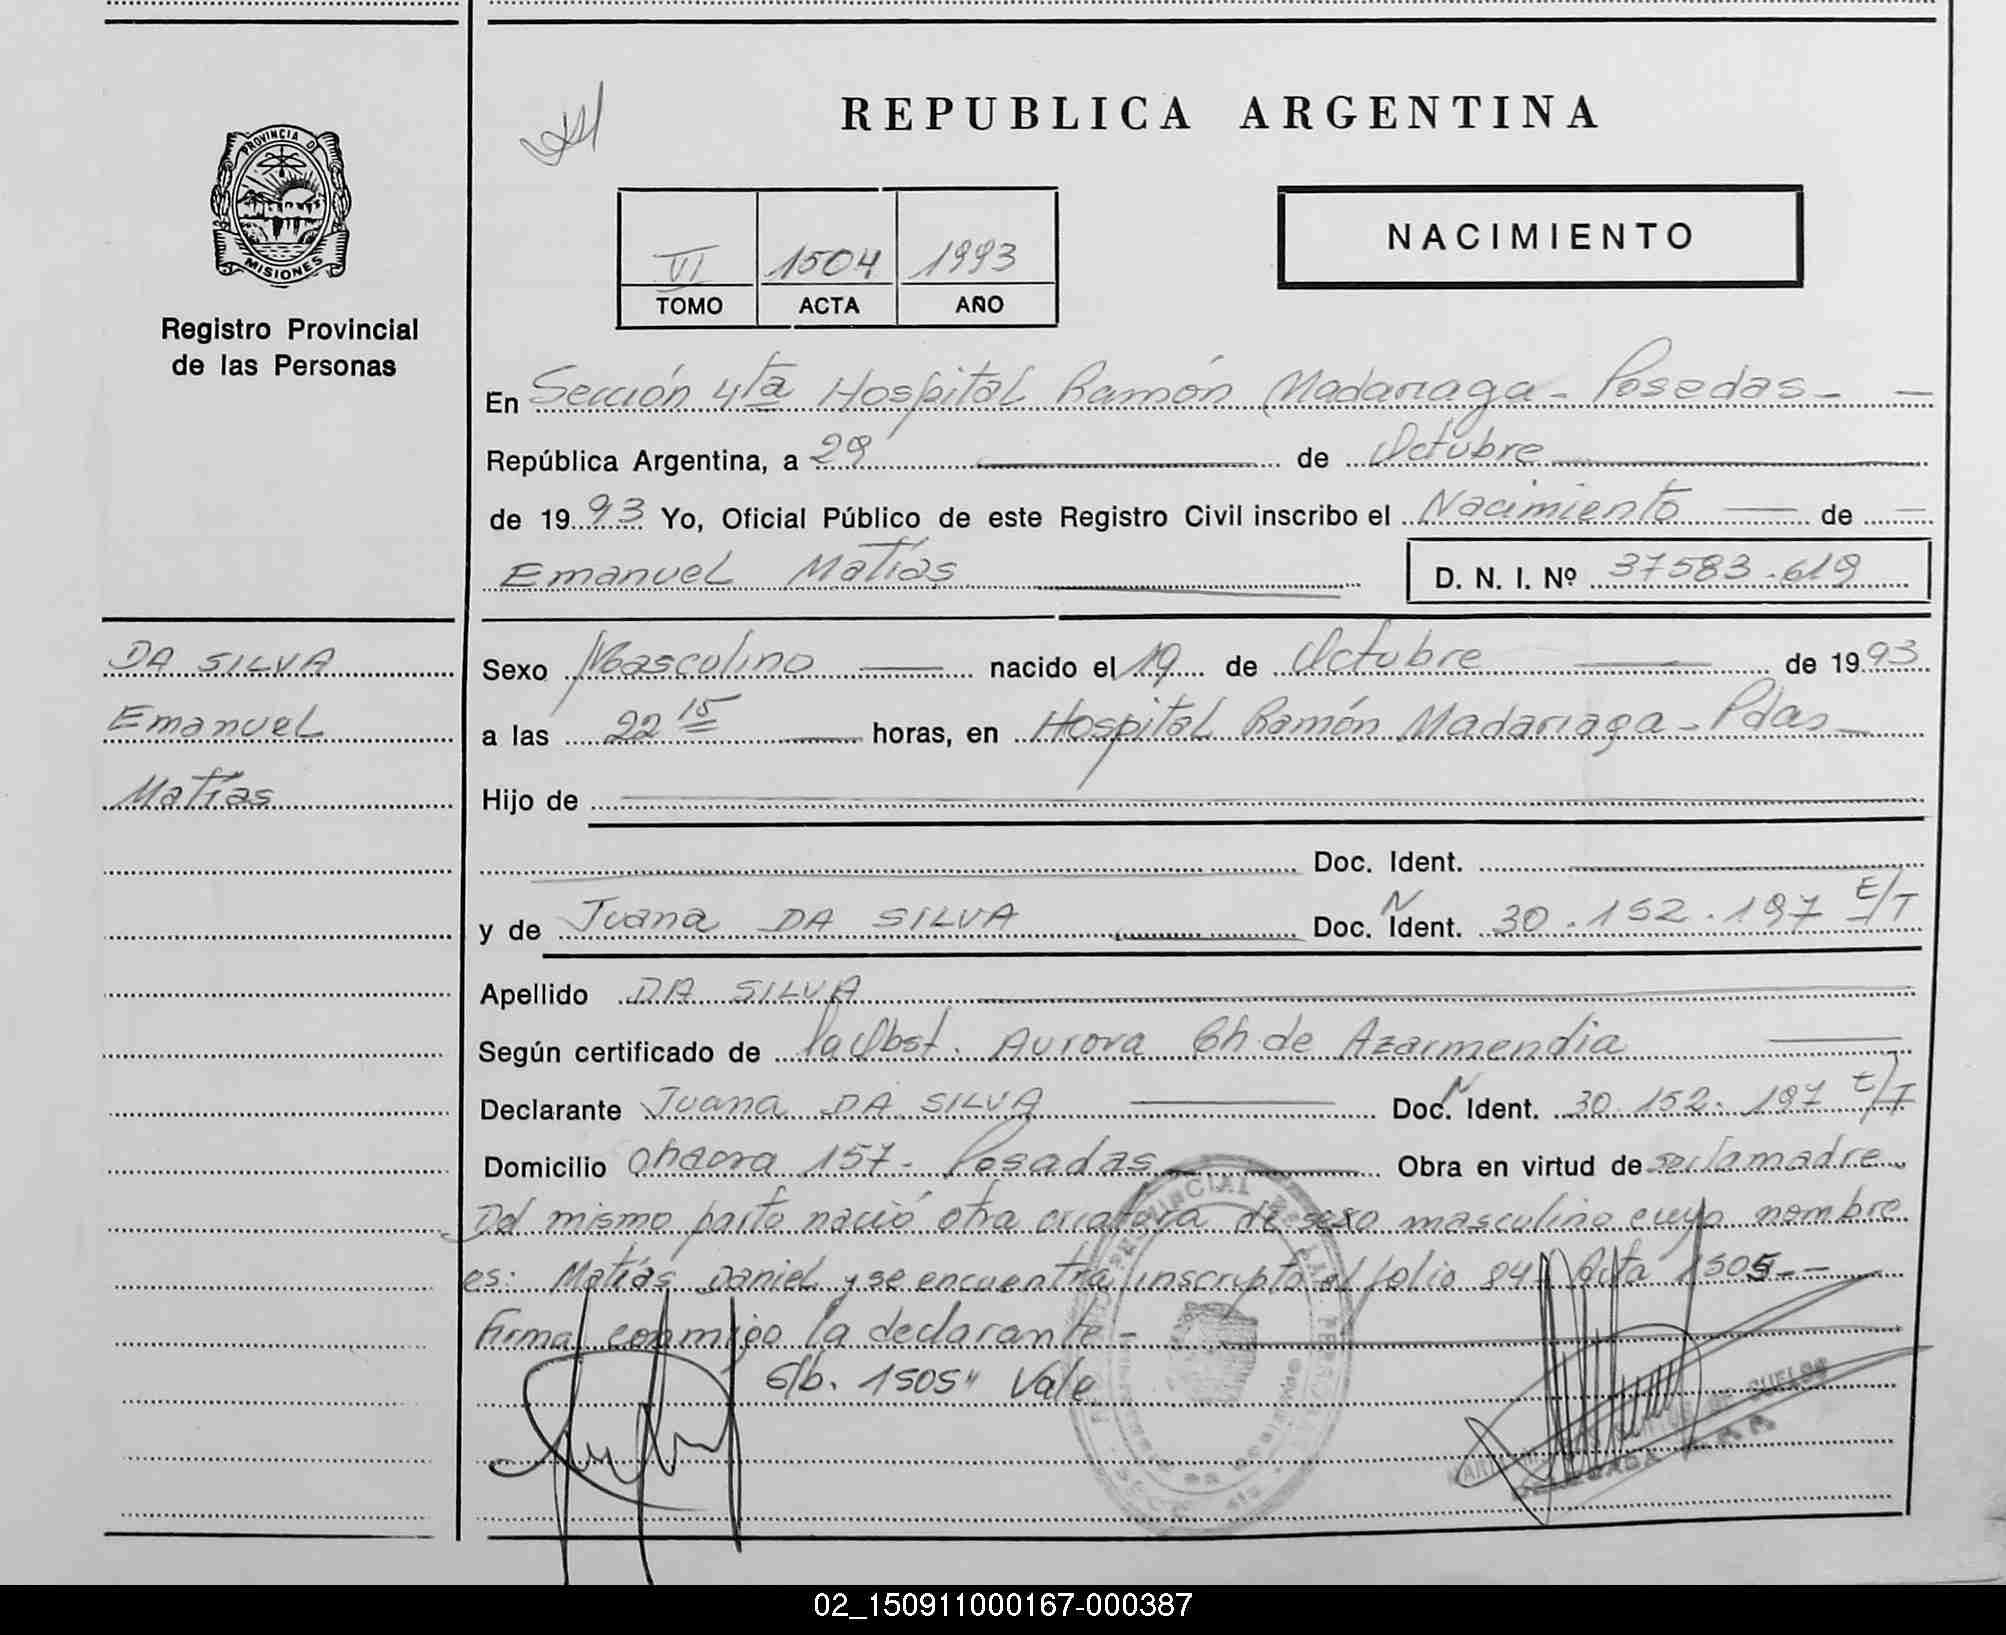 REPUBLICA ARGENTINA
PROVINCIA D
MISIONES
Registro Provincial
de las Personas
VI 1504 1993
TOMO ACTA AÑO
NACIMIENTO
En Sección 4ta Hospital Ramón Madariaga - Posadas -
República Argentina, a 29 de Octubre
de 1993 Yo, Oficial Público de este Registro Civil inscribo el Nacimiento de
Emanuel Matías D. N. I. Nº 37583.619
DA SILVA
Emanuel
Matías
Sexo Masculino nacido el 19 de Octubre de 1993
a las 22 15 horas, en Hospital Ramón Madariaga - Pdas -
Hijo de
Doc. Ident.
y de Juana DA SILVA Doc. N Ident. 30.152.197 E/T
Apellido DA SILVA
Según certificado de la Obst. Aurora Ch de Azarmendia
Declarante Juana DA SILVA Doc. N Ident. 30.152.197 E/T
Domicilio Chacra 157 - Posadas Obra en virtud de ser la madre
Del mismo parto nació otra criatura de sexo masculino cuyo nombre
es: Matías Daniel y se encuentra inscripto al folio 84 Acta 1505 --
Firma conmigo la declarante -
S/b. 1505" Vale
02_150911000167-000387